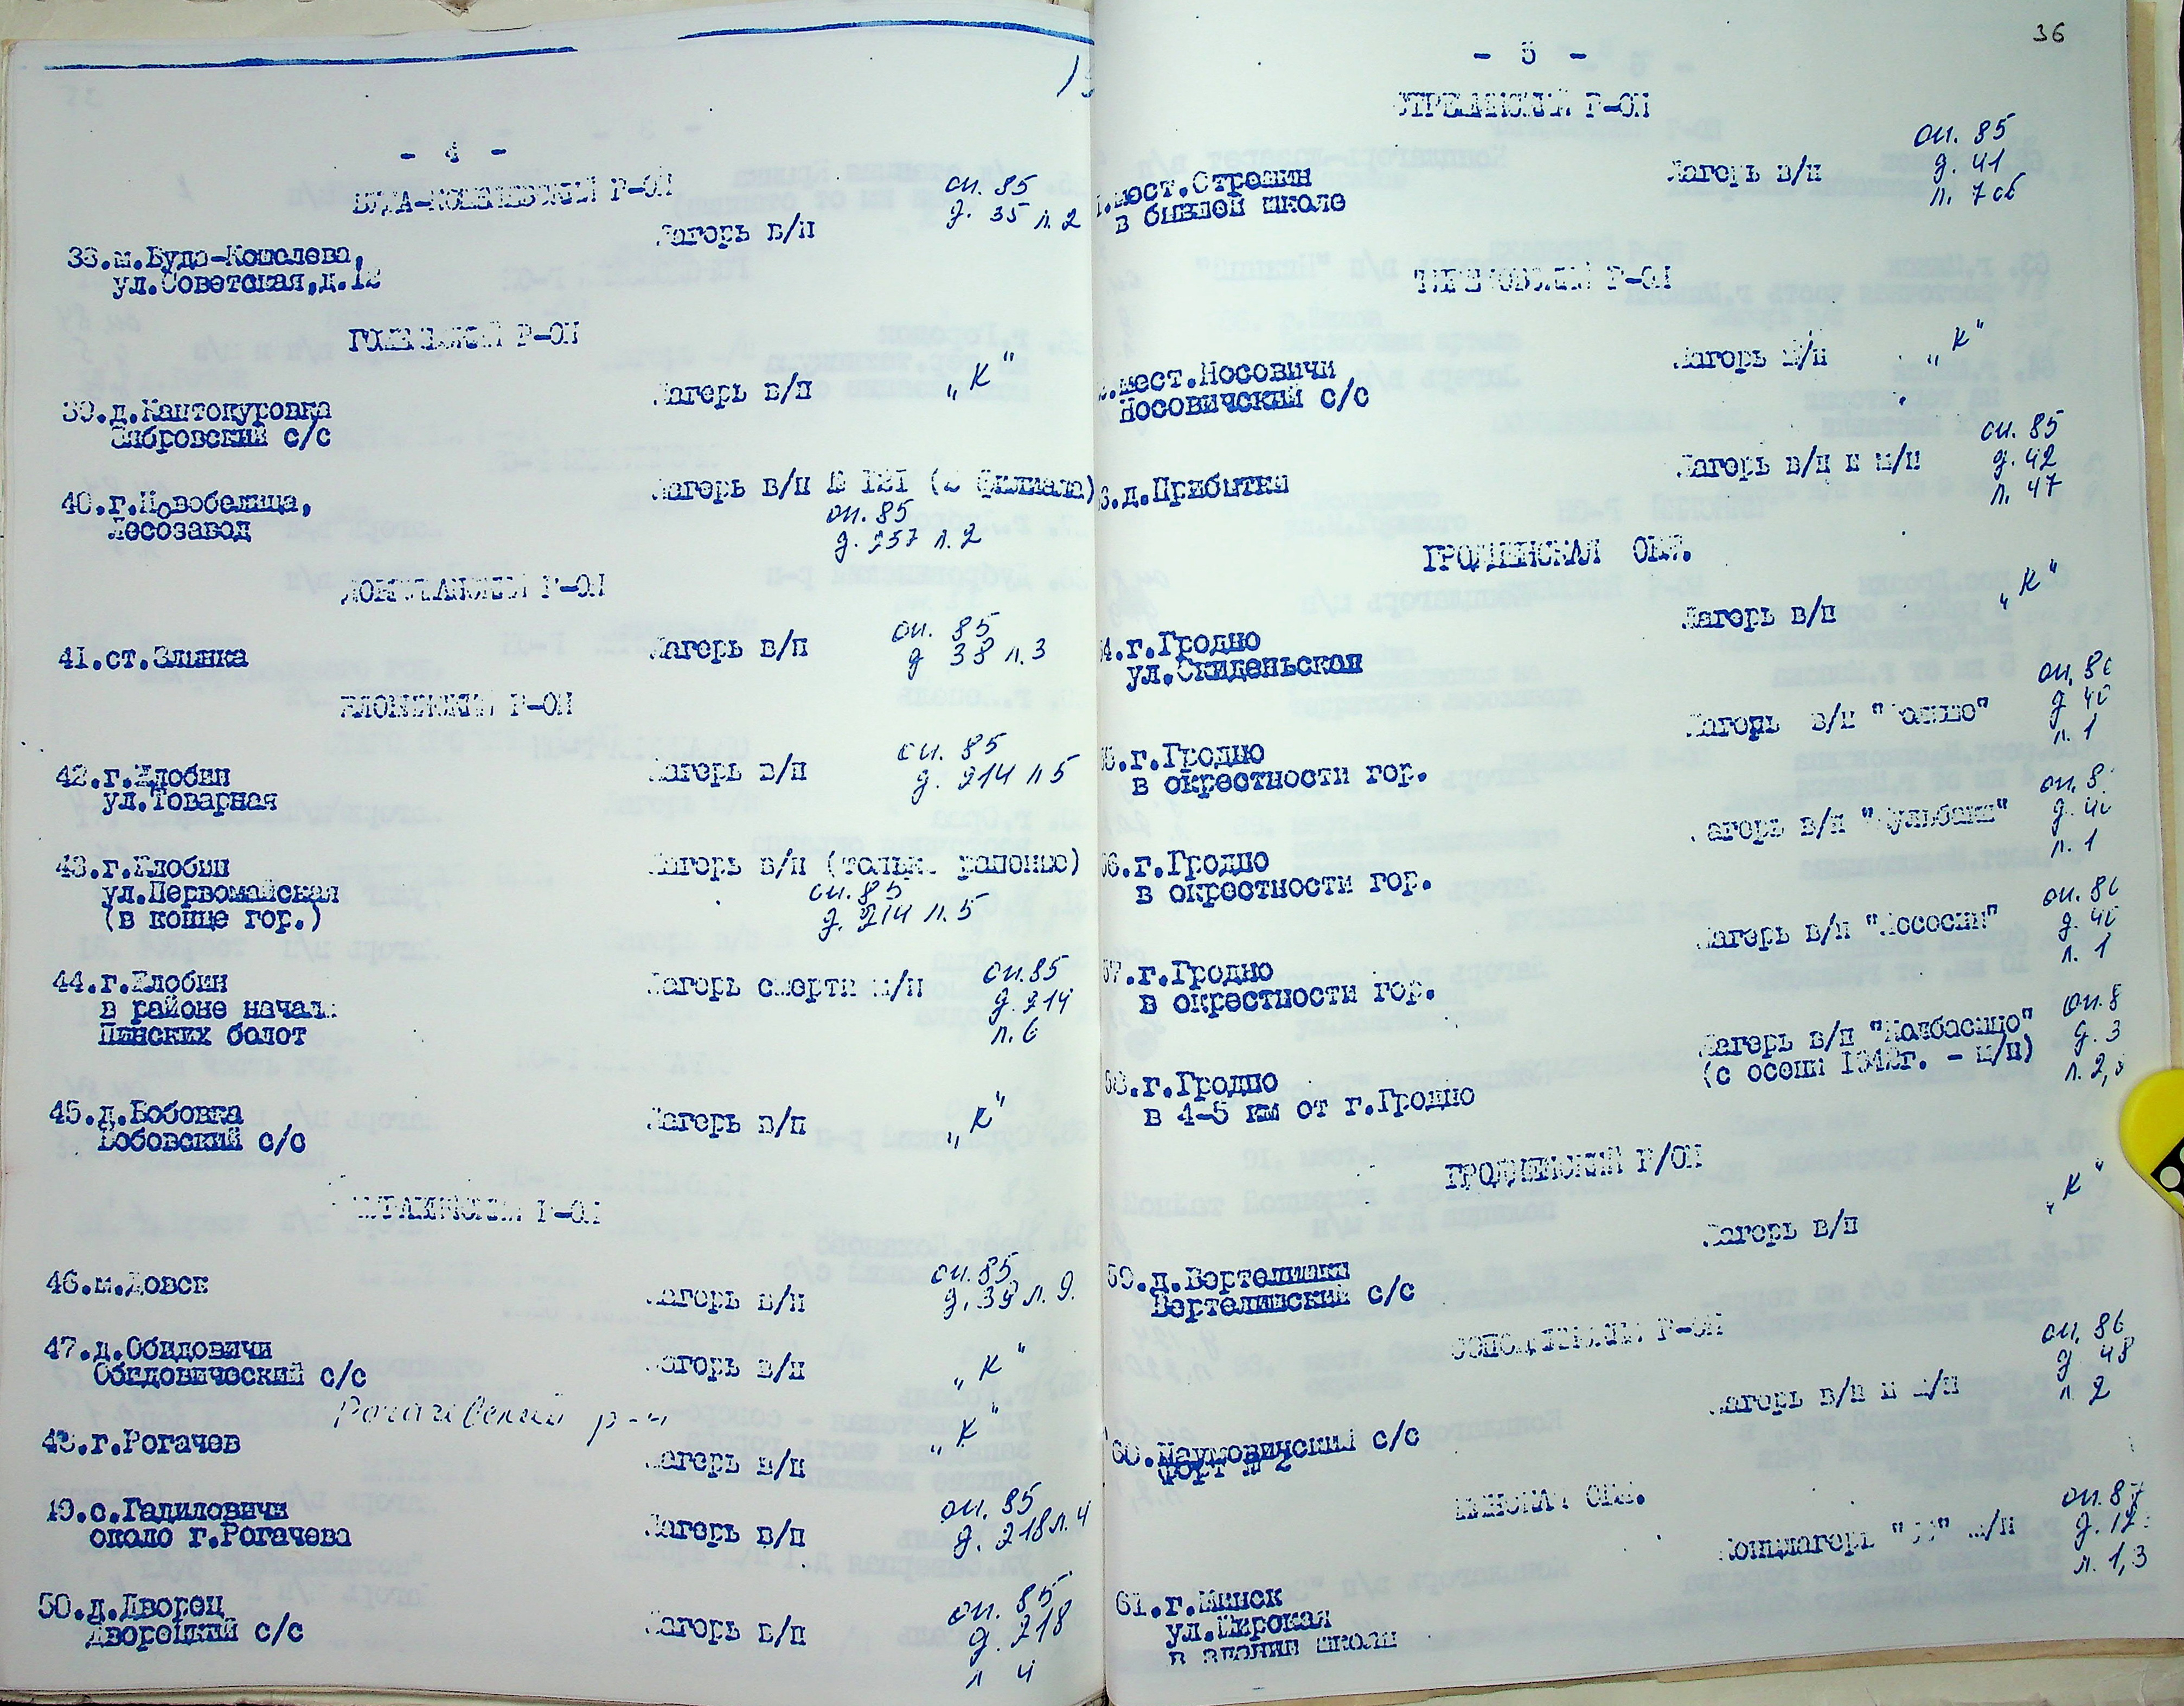 - 4 -
БУДА-КОШЕЛЕВСКИЙ Р-ОН
38.м.Буда-Кошелева,
ул.Советская,д.12
Лагерь в/п
оп. 85
д. 35 л. 2
Р-ОН
39.д.Каптокуровка
Зябровский с/с
Лагерь в/п
"К"
40.г.Новобелица,
Лесозавод
Лагерь в/п № 121 (2 филиала)
оп. 85
д. 257 л. 2
Р-ОН
41.ст.Злынка
Лагерь в/п
оп. 85
д 38 л. 3
ЖЛОБИНСКИЙ Р-ОН
42.г.Жлобин
ул.Товарная
Лагерь в/п
оп. 85
д. 214 л 5
43.г.Жлобин
ул.Первомайская
(в конце гор.)
Лагерь в/п (только ранению)
оп. 85
д. 214 л. 5
44.г.Жлобин
в районе начал.
Пинских болот
Лагерь смерти м/н
оп. 85
д. 214
л. 6
45.д.Бобовка
Бобовский с/с
Лагерь в/п
"К"
Р-ОН
46.м.Довск
Лагерь в/п
оп. 85
д. 39 л. 9.
47.д.Обидовичи
Обидовический с/с
Лагерь в/п
"К"
Рогачевский р-н
48.г.Рогачев
Лагерь в/п
"К"
49.с.Гадиловичи
около г.Рогачева
Лагерь в/п
оп. 85
д. 218 л. 4
50.д.Дворец
Дворецкий с/с
Лагерь в/п
оп. 85
д. 218
л 4
36
- 5 -
СТРЕШИНСКИЙ Р-ОН
.мест.Стрешин
в бывшей школе
Лагерь в/п
оп. 85
д. 41
л. 7 об
ТЕРЕХОВСКИЙ Р-ОН
.мест.Носовичи
Носовичский с/с
Лагерь в/п
"К"
3.д.Прибытки
Лагерь в/п и м/н
оп. 85
д. 42
л. 47
ГРОДНЕНСКАЯ ОБЛ.
54.г.Гродно
ул.Скидельская
Лагерь в/п
"К"
55.г.Гродно
в окрестности гор.
Лагерь в/п
оп. 86
д 40
л. 1
56.г.Гродно
в окрестности гор.
Лагерь в/п "Кульбаки"
оп. 8
д. 40
л. 1
57.г.Гродно
в окрестности гор.
Лагерь в/п "Лососни"
оп. 86
д. 40
л. 1
58.г.Гродно
в 4-5 км от г.Гродно
Лагерь в/п "Колбасино"
(с осени 1942г. - м/н)
оп. 8
д. 3
л. 2,
ГРОДНЕНСКИЙ Р/ОН
59.д.Вертелишки
Вертелишский с/с
Лагерь в/п
"К"
СОПОЦКИНСКИЙ Р-ОН
60.Наумовичский с/с
форт № 2
Лагерь в/п и м/н
оп. 86
д 48
л 2
МИНСКАЯ ОБЛ.
61.г.Минск
ул.Широкая
в здании школы
Концлагерь "СС" м/н
оп. 87
д. 12
л. 1,3